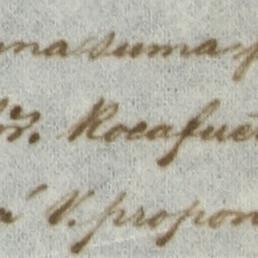 una suma p
Sr. Rocafue
á V. propon